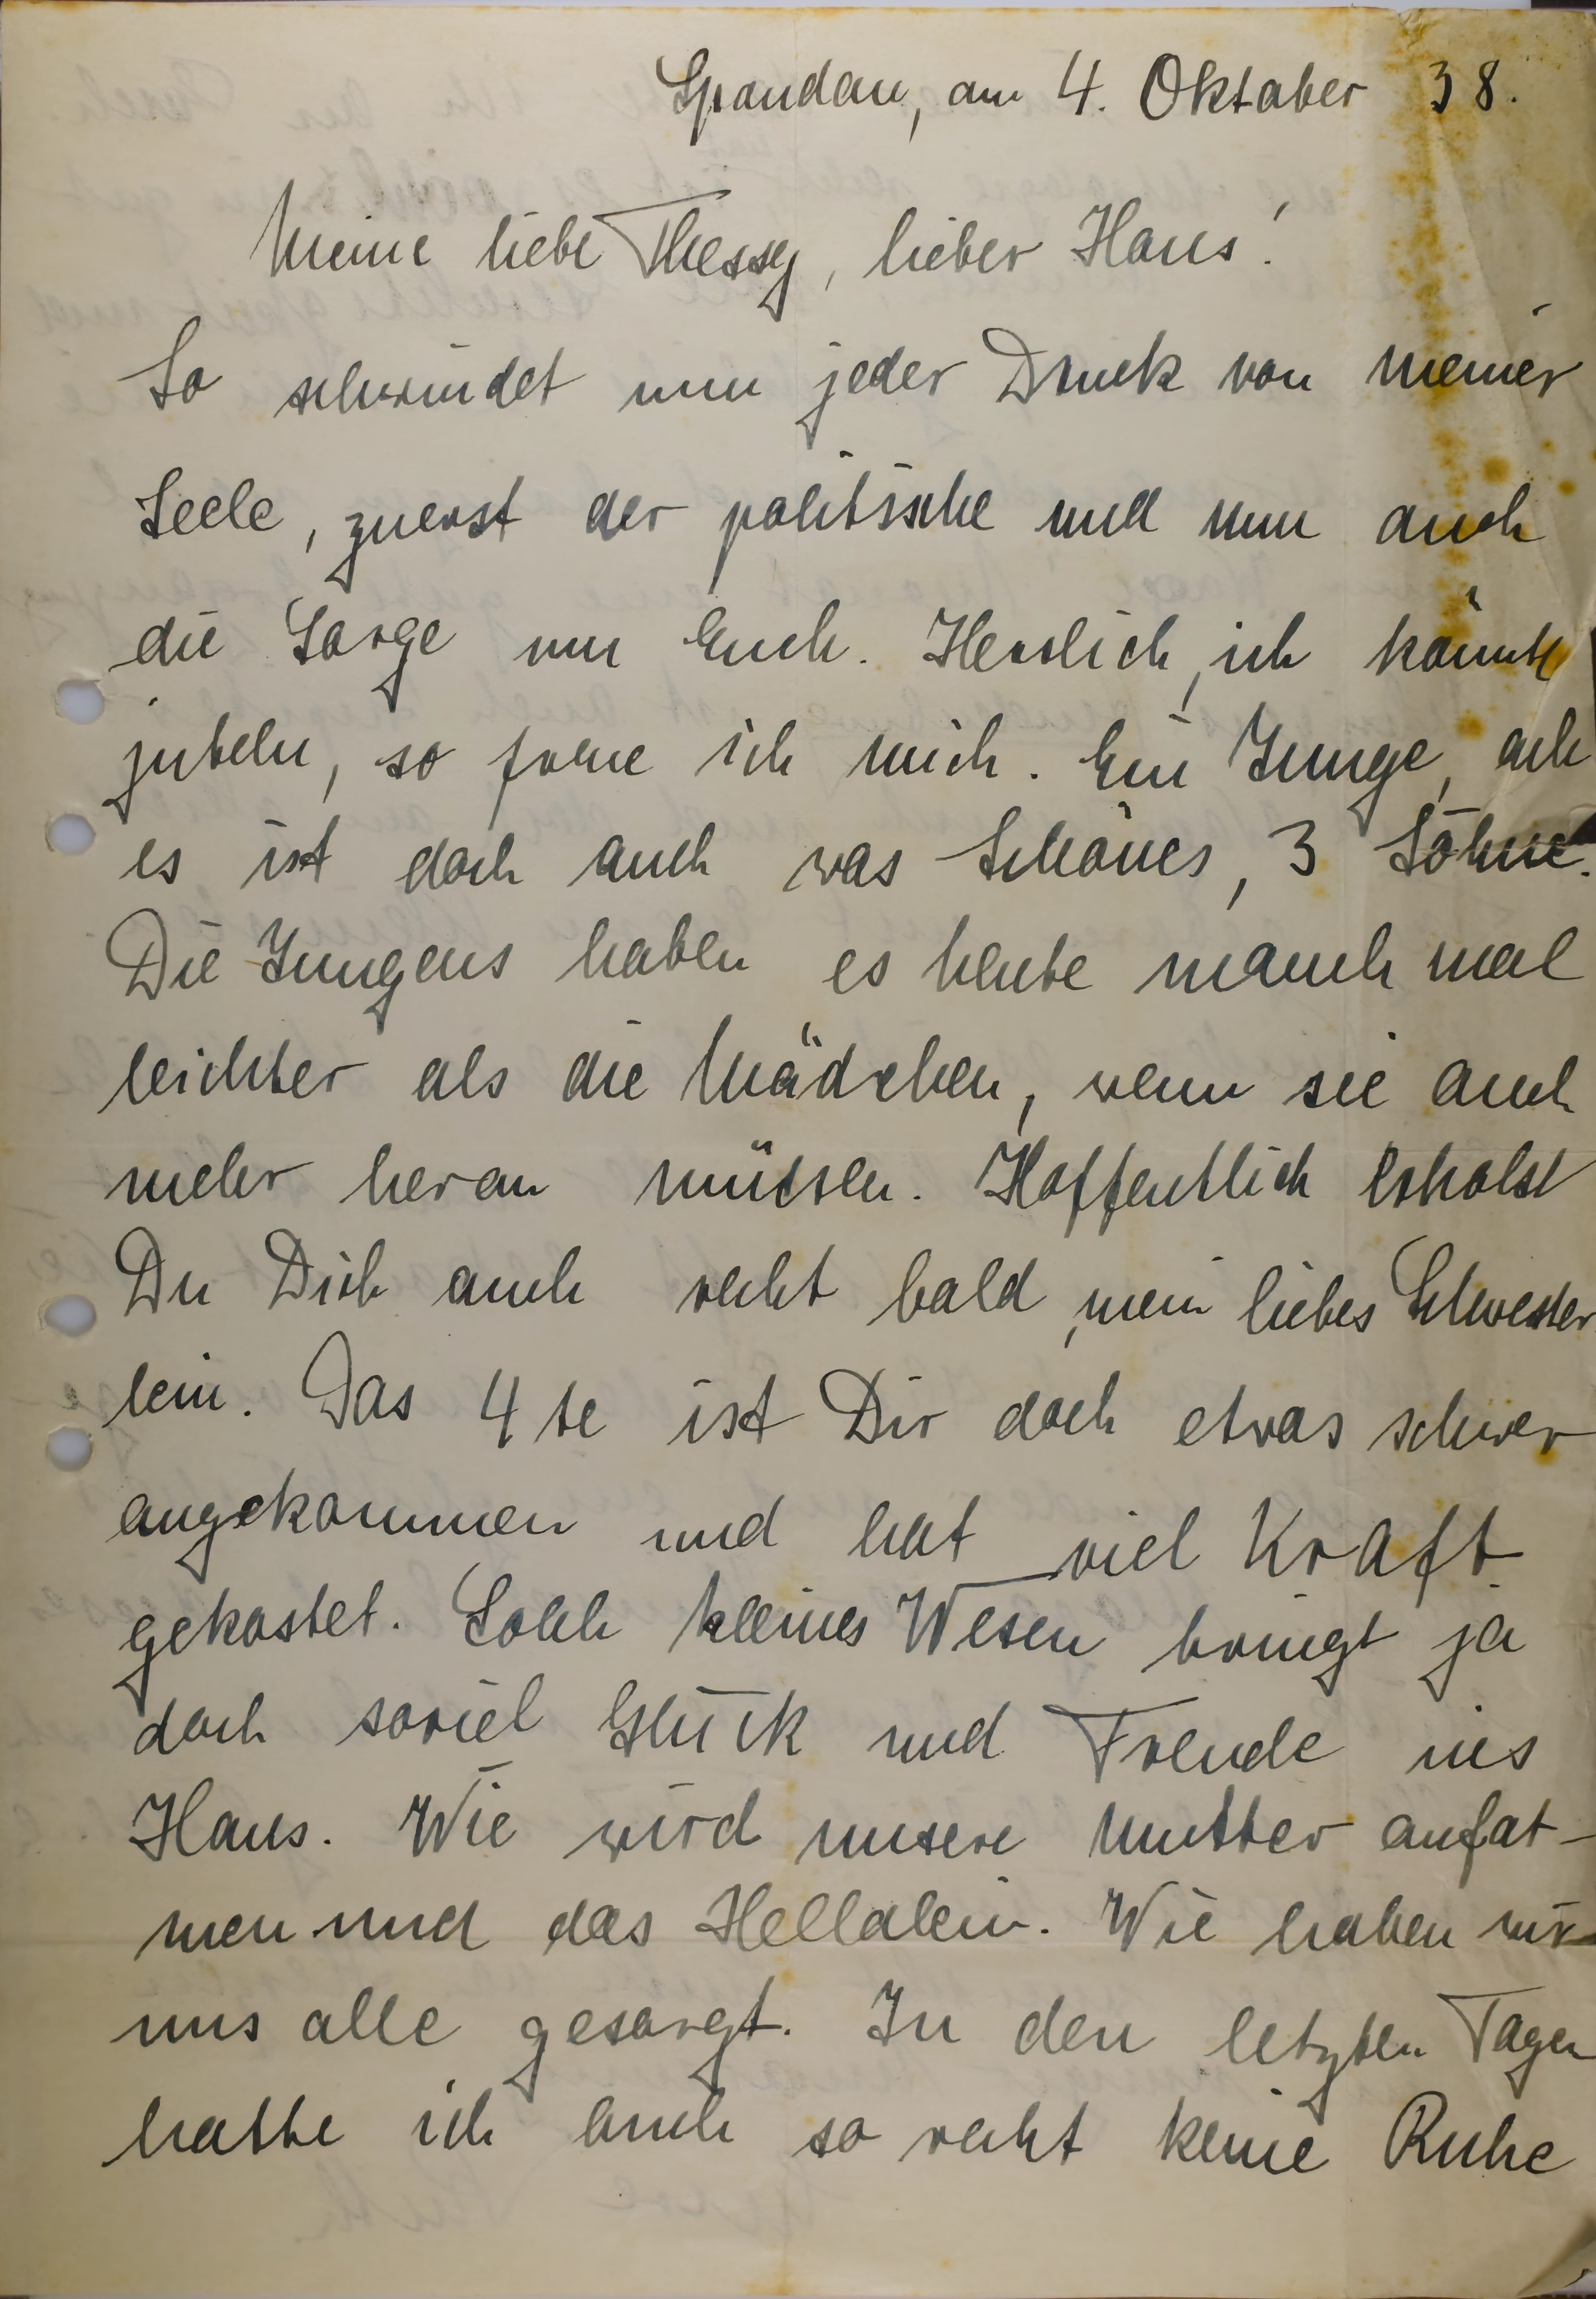 Spandau, am 4. Oktober 38.
Meine liebe Thessy, lieber Hans!
So schwindet nun jeder Druck von meiner
Seele, zuerst der politische und nun auch
die Sorge um Euch. Herrlich, ich könnte
jubeln, so freue ich mich. Ein Junge, ach
es ist doch auch was Schönes, 3 Söhne.
Die Jungens haben es heute manch mal
leichter als die Mädchen, wenn sie auch
mehr heran müssen. Hoffentlich erholst
Du Dich auch recht bald, mein liebes Schwester
lein. Das 4te ist Dir doch etwas schwer
angekommen und hat viel Kraft
gekostet. Solch kleines Wesen bringt ja
doch soviel Glück und Freude ins
Haus. Wie wird unsere Mutter aufat-
men und das Hellalein. Wie haben wir
uns alle gesorgt. In den letzten Tagen
hatte ich auch so recht keine Ruhe